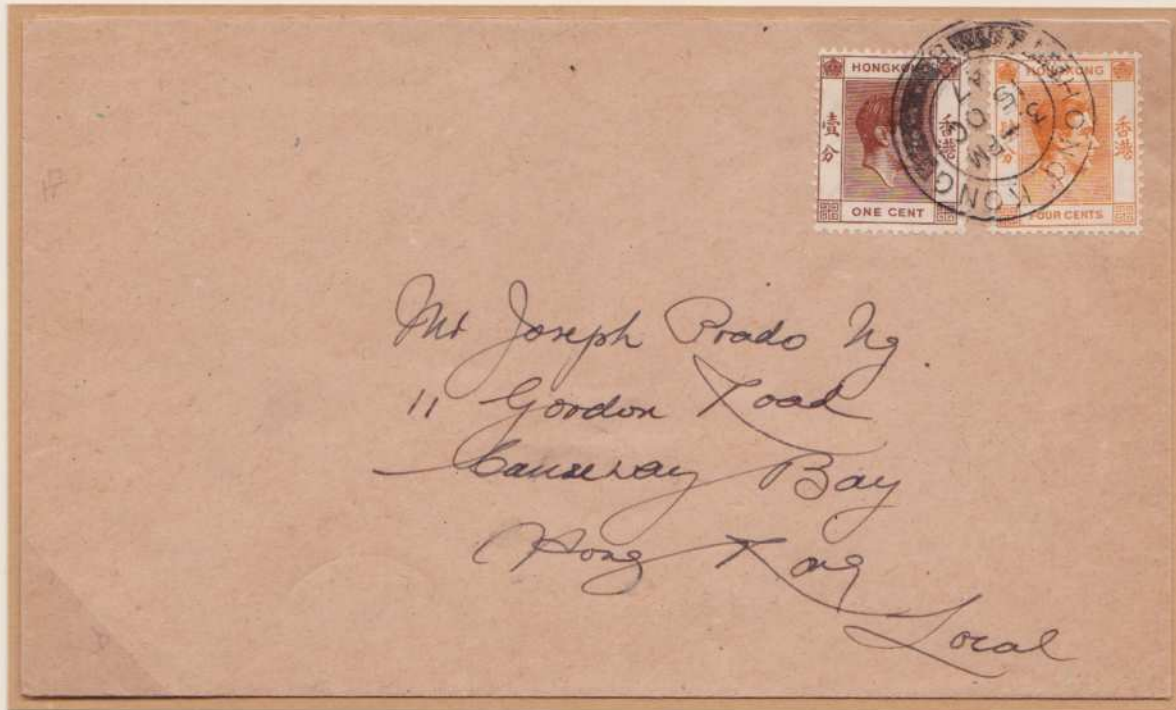 HONGKONG
壹分
香港
ONE CENT
HONGKONG
分
香港
FOUR CENTS
HONG KONG
1 PM
OC
47
Mr Joseph Prado Ng
11 Gordon Road
Causeway Bay
Hong Kong
Local